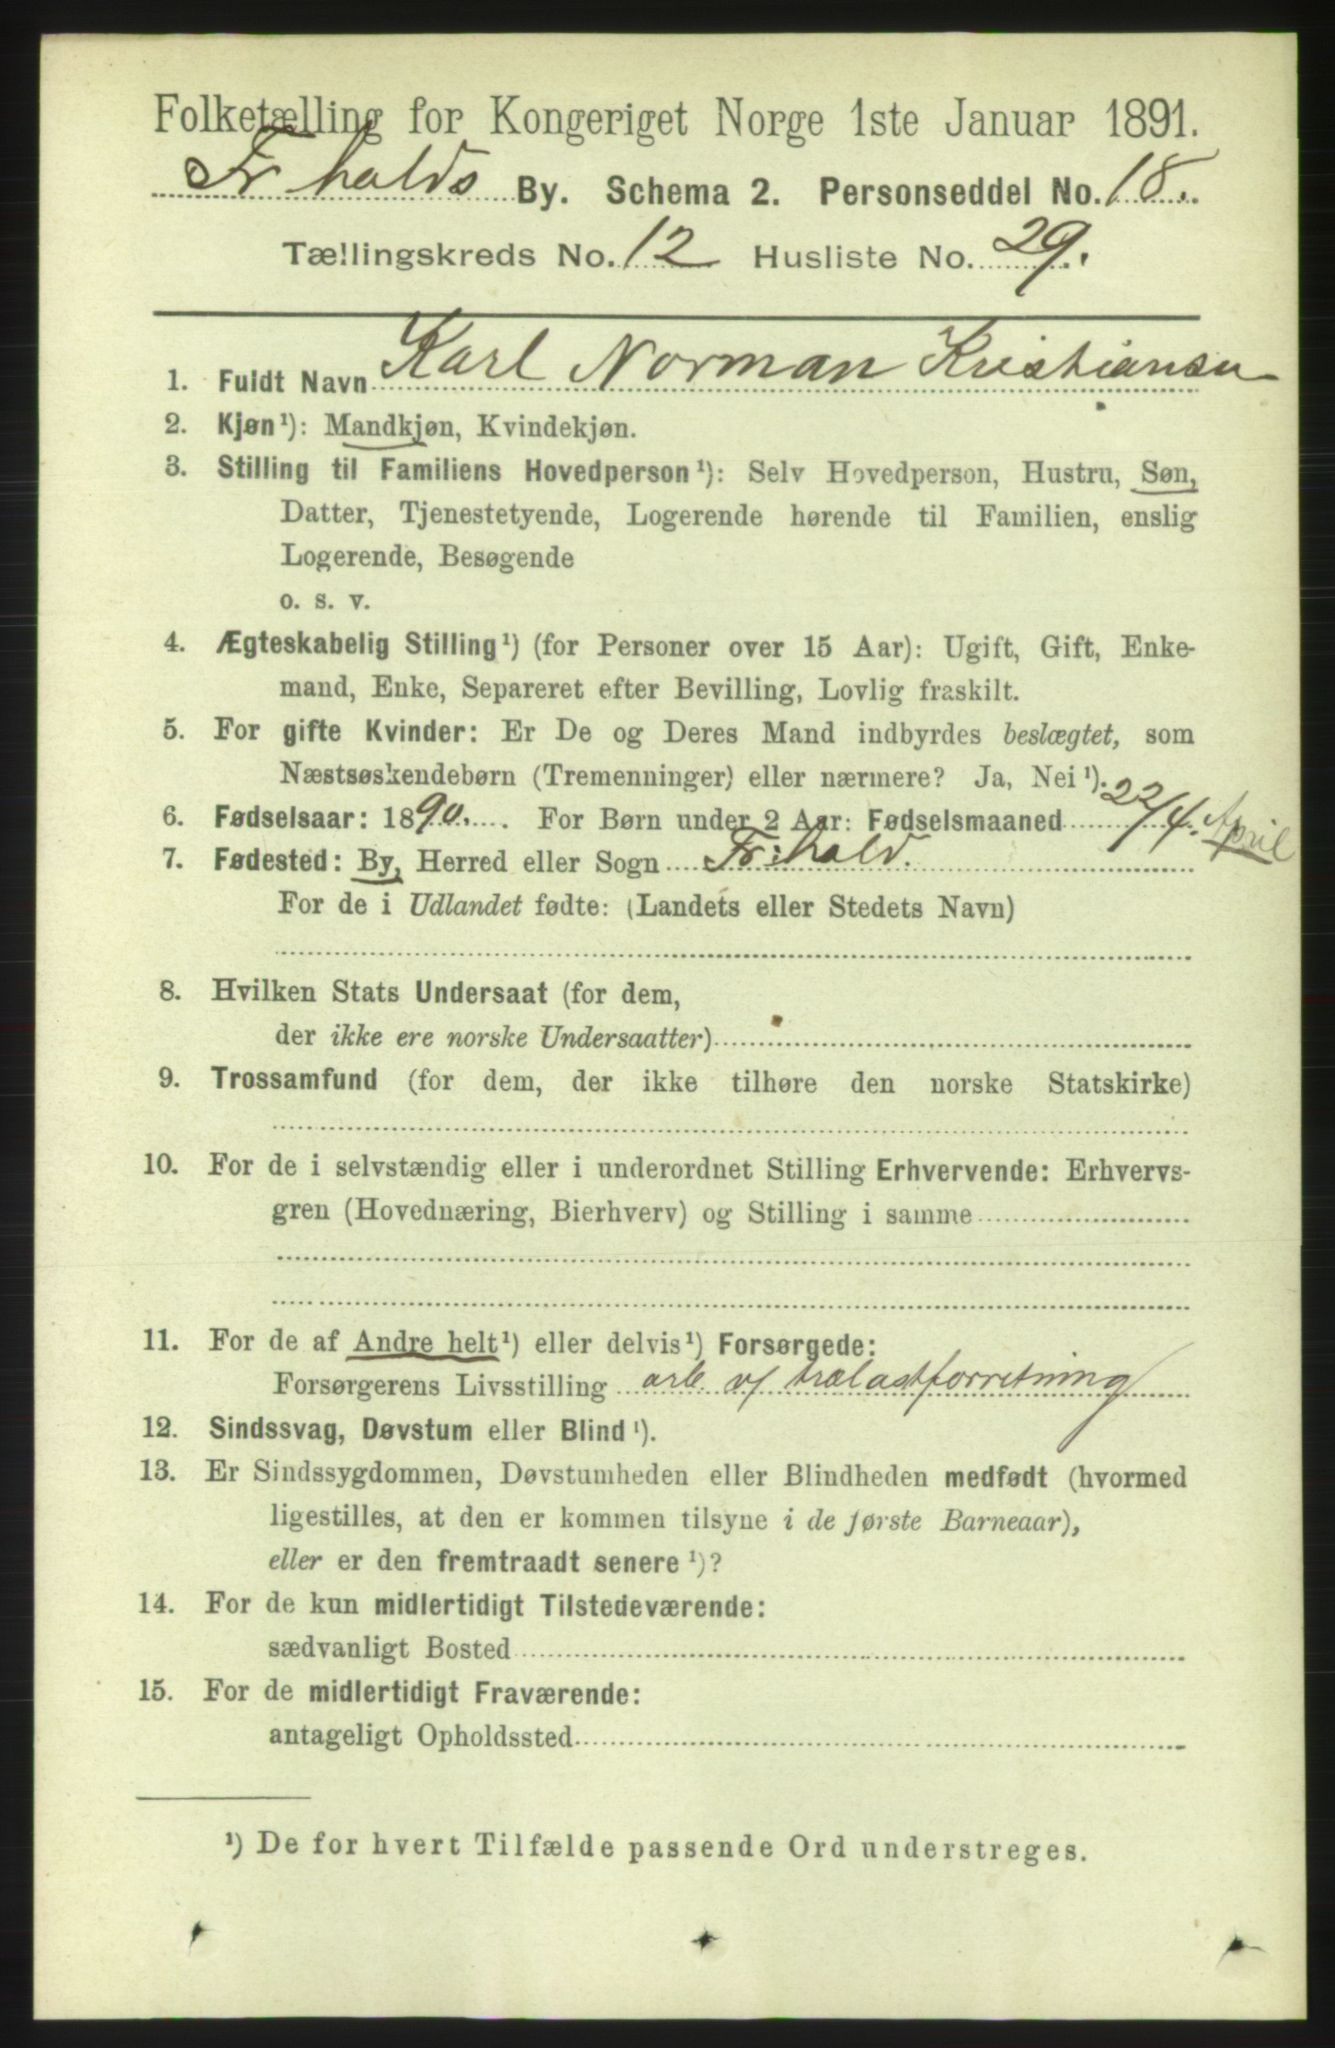 Folketælling for Kongeriget Norge 1ste Januar 1891.
Fr halds By. Schema 2. Personseddel No. 18.
Tællingskreds No. 12 Husliste No. 29.
1. Fuldt Navn Karl Norman Kristiansen
2. Kjøn¹): Mandkjøn, Kvindekjøn.
3. Stilling til Familiens Hovedperson¹): Selv Hovedperson, Hustru, Søn,
Datter, Tjenestetyende, Logerende hørende til Familien, enslig
Logerende, Besøgende
o. s. v.
4. Ægteskabelig Stilling¹) (for Personer over 15 Aar): Ugift, Gift, Enke-
mand, Enke, Separeret efter Bevilling, Lovlig fraskilt.
5. For gifte Kvinder: Er De og Deres Mand indbyrdes beslægtet, som
Næstsøskendebørn (Tremenninger) eller nærmere? Ja, Nei¹).
6. Fødselsaar: 1890. For Børn under 2 Aar: Fødselsmaaned 22/4. April
7. Fødested: By, Herred eller Sogn Fr: hald.
For de i Udlandet fødte: (Landets eller Stedets Navn)
8. Hvilken Stats Undersaat (for dem,
der ikke ere norske Undersaatter)
9. Trossamfund (for dem, der ikke tilhøre den norske Statskirke)
10. For de i selvstændig eller i underordnet Stilling Erhvervende: Erhvervs-
gren (Hovednæring, Bierhverv) og Stilling i samme
11. For de af Andre helt¹) eller delvis¹) Forsørgede:
Forsørgerens Livsstilling arb. v/ trælastforretning
12. Sindssvag, Døvstum eller Blind¹).
13. Er Sindssygdommen, Døvstumheden eller Blindheden medfødt (hvormed
ligestilles, at den er kommen tilsyne i de første Barneaar),
eller er den fremtraadt senere¹)?
14. For de kun midlertidigt Tilstedeværende:
sædvanligt Bosted
15. For de midlertidigt Fraværende:
antageligt Opholdssted
¹) De for hvert Tilfælde passende Ord understreges.